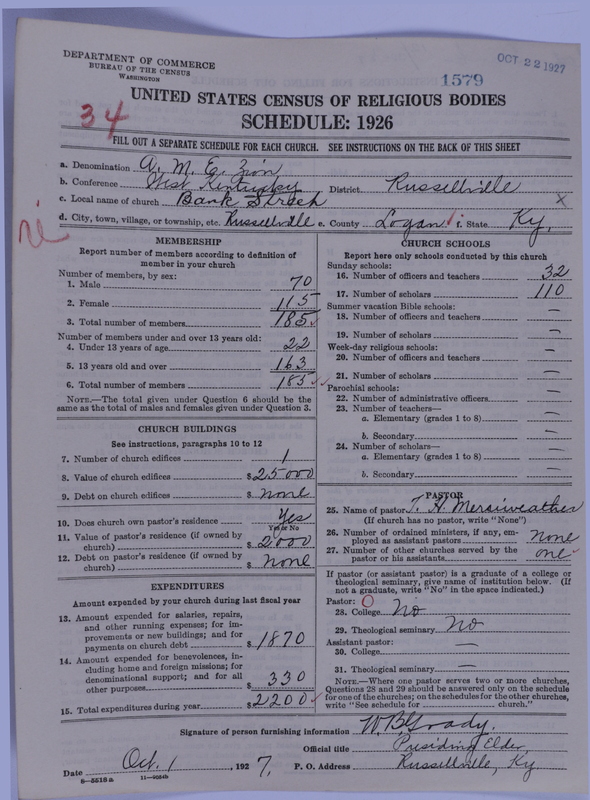 DEPARTMENT OF COMMERCE
BUREAU OF THE CENSUS
WASHINGTON
OCT 22 1927
1579
UNITED STATES CENSUS OF RELIGIOUS BODIES
34
SCHEDULE: 1926
FILL OUT A SEPARATE SCHEDULE FOR EACH CHURCH. SEE INSTRUCTIONS ON THE BACK OF THIS SHEET
a. Denomination A. M. E. Zion
b. Conference West Kentucky District Russellville
c. Local name of church Bank Street x
d. City, town, village, or township, etc. Russellville e. County Logan f. State Ky.
MEMBERSHIP
Report number of members according to definition of
member in your church
Number of members, by sex:
1. Male 70
2. Female 115
3. Total number of members 185
Number of members under and over 13 years old:
4. Under 13 years of age 22
5. 13 years old and over 163
6. Total number of members 185
NOTE.—The total given under Question 6 should be
same as the total of males and females given under Question 3.
CHURCH BUILDINGS
See instructions, paragraphs 10 to 12
7. Number of church edifices 1
8. Value of church edifices $ 25000
9. Debt on church edifices $ none
10. Does church own pastor's residence Yes
Yes or No
11. Value of pastor's residence (if owned by
church) $ 2000
12. Debt on pastor's residence (if owned by
church) $ none
EXPENDITURES
Amount expended by your church during last fiscal year
13. Amount expended for salaries, repairs,
and other running expenses; for im-
provements or new buildings; and for
payments on church debt $ 1870
14. Amount expended for benevolences, in-
cluding home and foreign missions; for
denominational support; and for all
other purposes $ 330
15. Total expenditures during year $ 2200
CHURCH SCHOOLS
Report here only schools conducted by this church
Sunday schools:
16. Number of officers and teachers 32
17. Number of scholars 110
Summer vacation Bible schools:
18. Number of officers and teachers —
19. Number of scholars —
Week-day religious schools:
20. Number of officers and teachers —
21. Number of scholars —
Parochial schools:
22. Number of administrative officers —
23. Number of teachers—
a. Elementary (grades 1 to 8) —
b. Secondary —
24. Number of scholars—
a. Elementary (grades 1 to 8) —
b. Secondary —
PASTOR
25. Name of pastor T. H. Merriweather
(If church has no pastor, write "None")
26. Number of ordained ministers, if any, em-
ployed as assistant pastors none
27. Number of other churches served by the
pastor or his assistants one
If pastor (or assistant pastor) is a graduate of a college or
theological seminary, give name of institution below. (If
not a graduate, write "No" in the space indicated.)
Pastor: O
28. College No
29. Theological seminary No
Assistant pastor:
30. College —
31. Theological seminary —
NOTE.—Where one pastor serves two or more churches,
Questions 28 and 29 should be answered only on the schedule
for one of the churches; on the schedules for the other churches,
write "See schedule for church."
Signature of person furnishing information W. B. Grady.
Official title Presiding Elder
Date Oct. 1, 1927. P. O. Address Russellville, Ky
8—5518 a 11—9264b